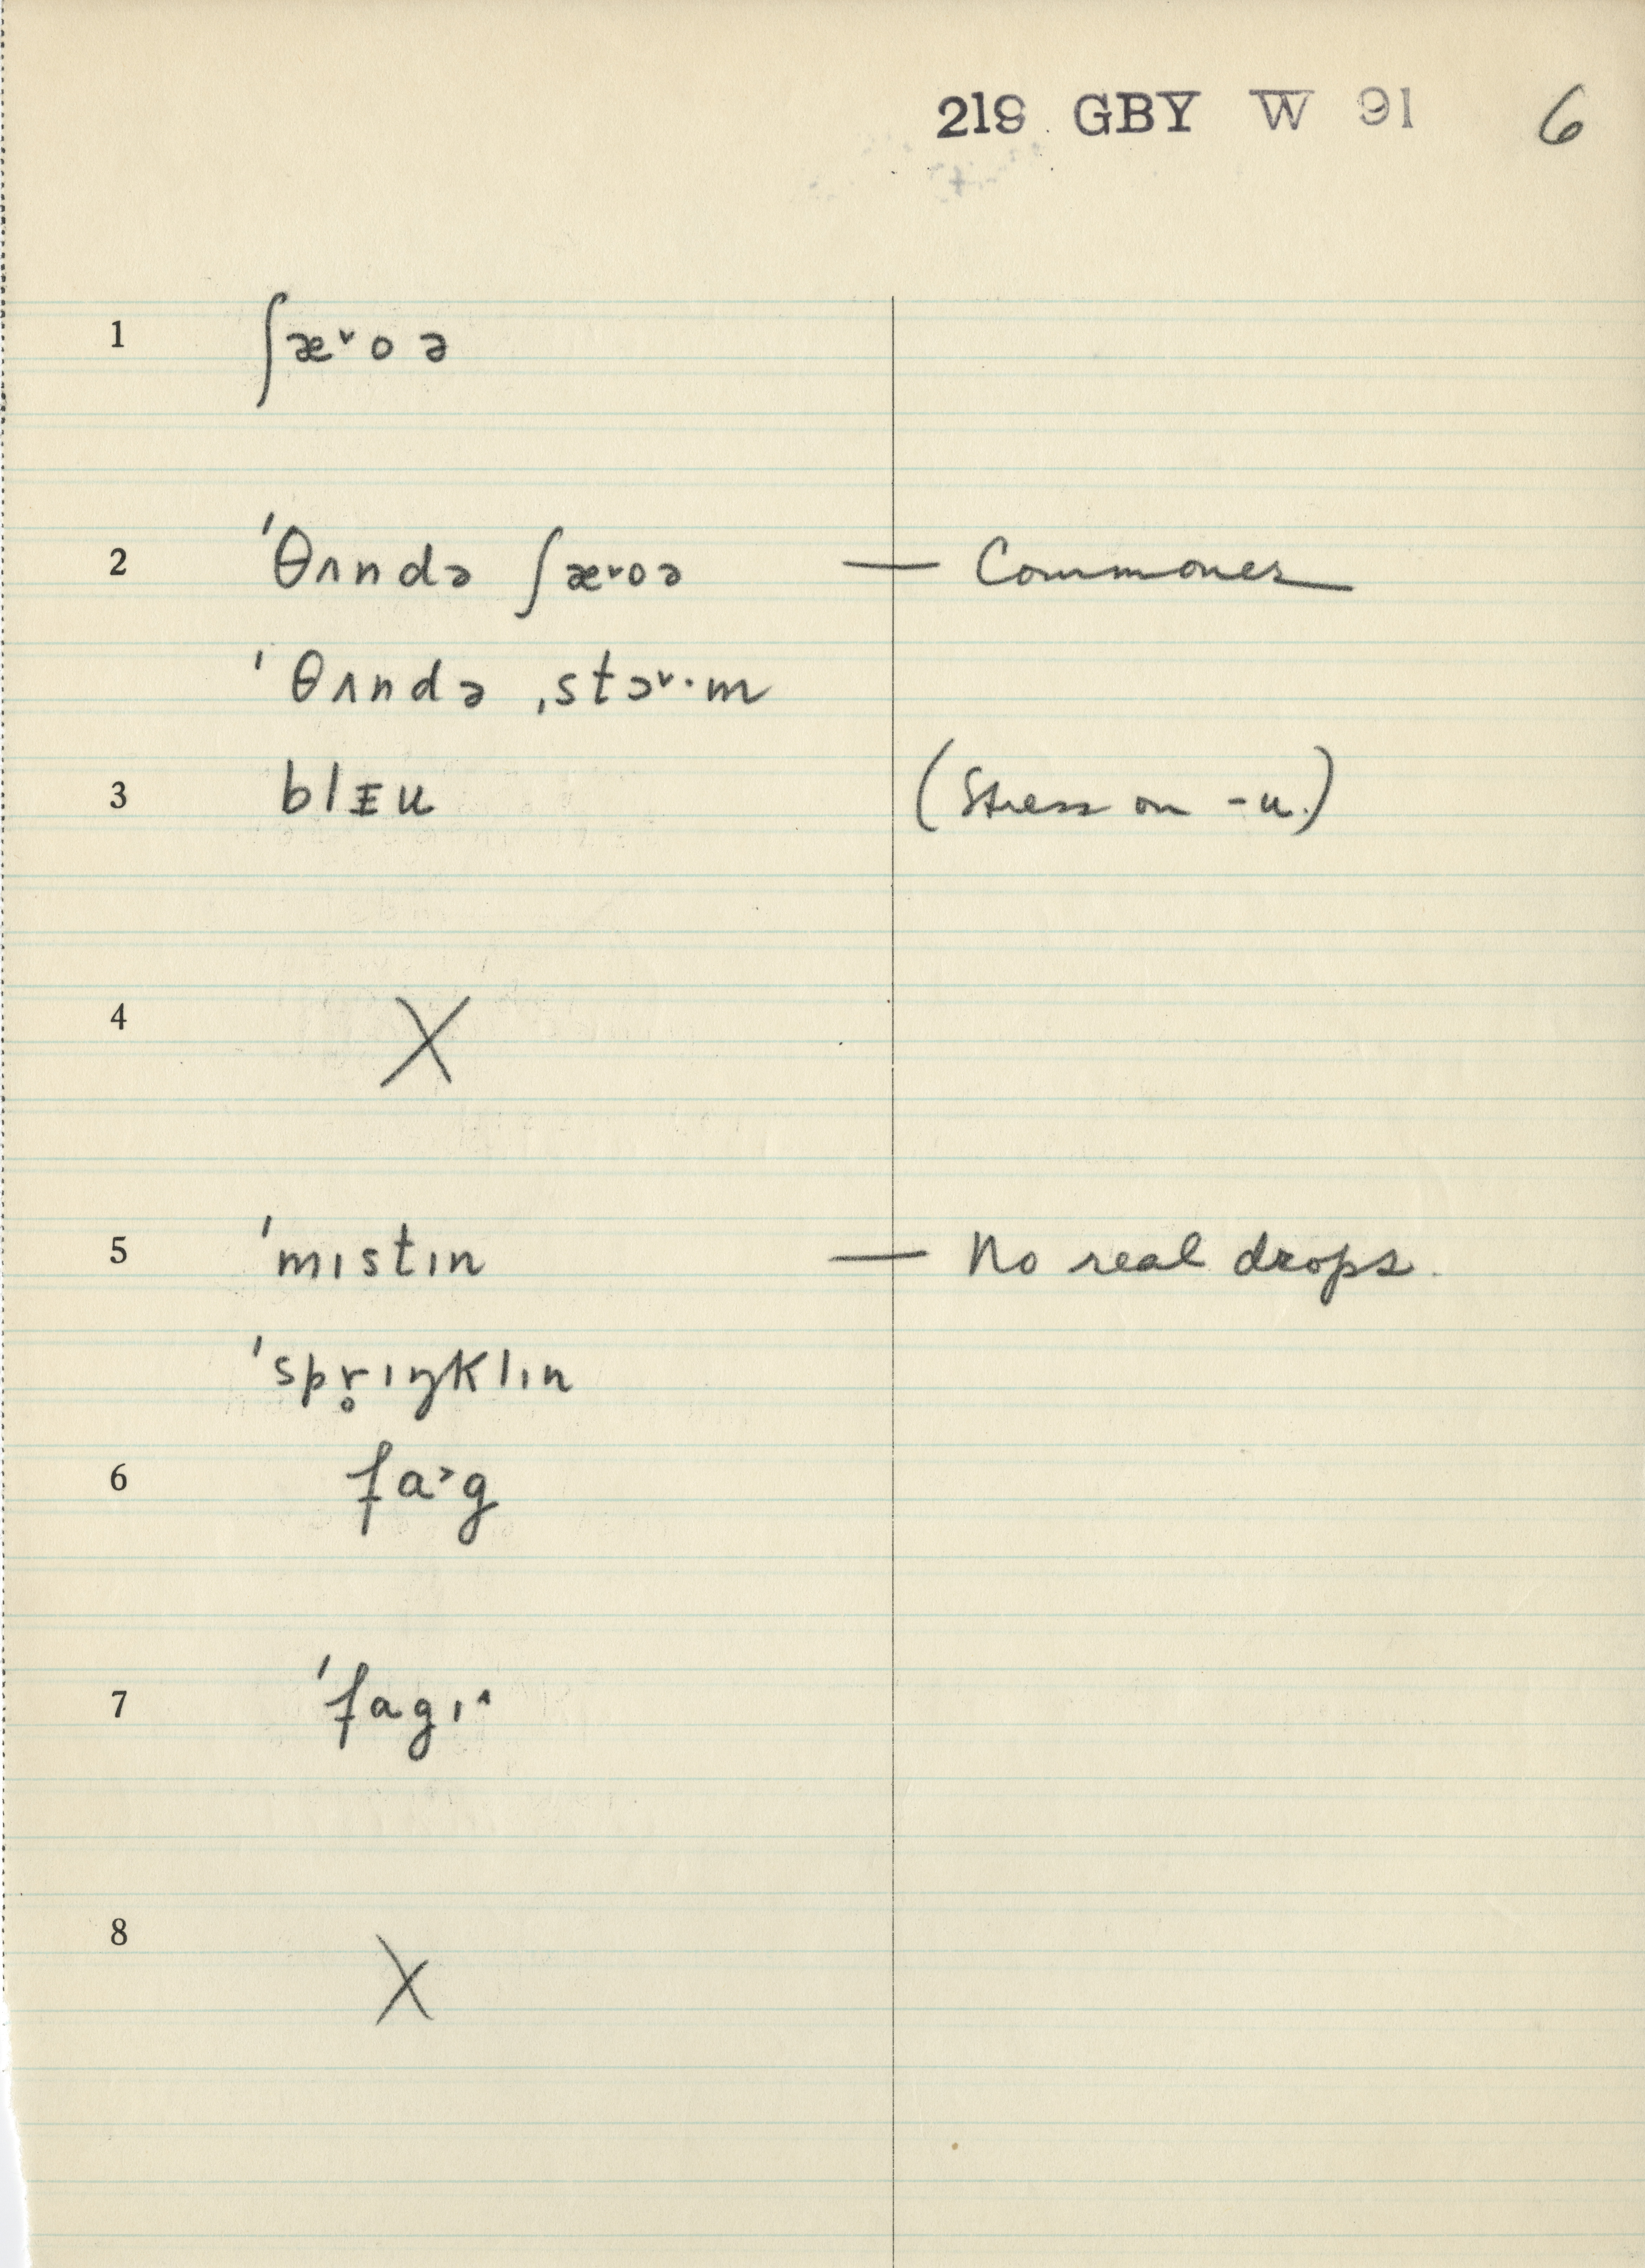 219 GBY W 91 6
1 ʃæ˅oə
2 ˈθʌndə ʃæ˅oə — Commoner
ˈθʌndə ˌstɔ˅·m
3 blɪu (Stress on -u.)
4 X
5 ˈmɪstɪn — No real drops.
ˈspr̥ɪŋklɪn
6 fa˃g
7 ˈfagɪ˄
8 X